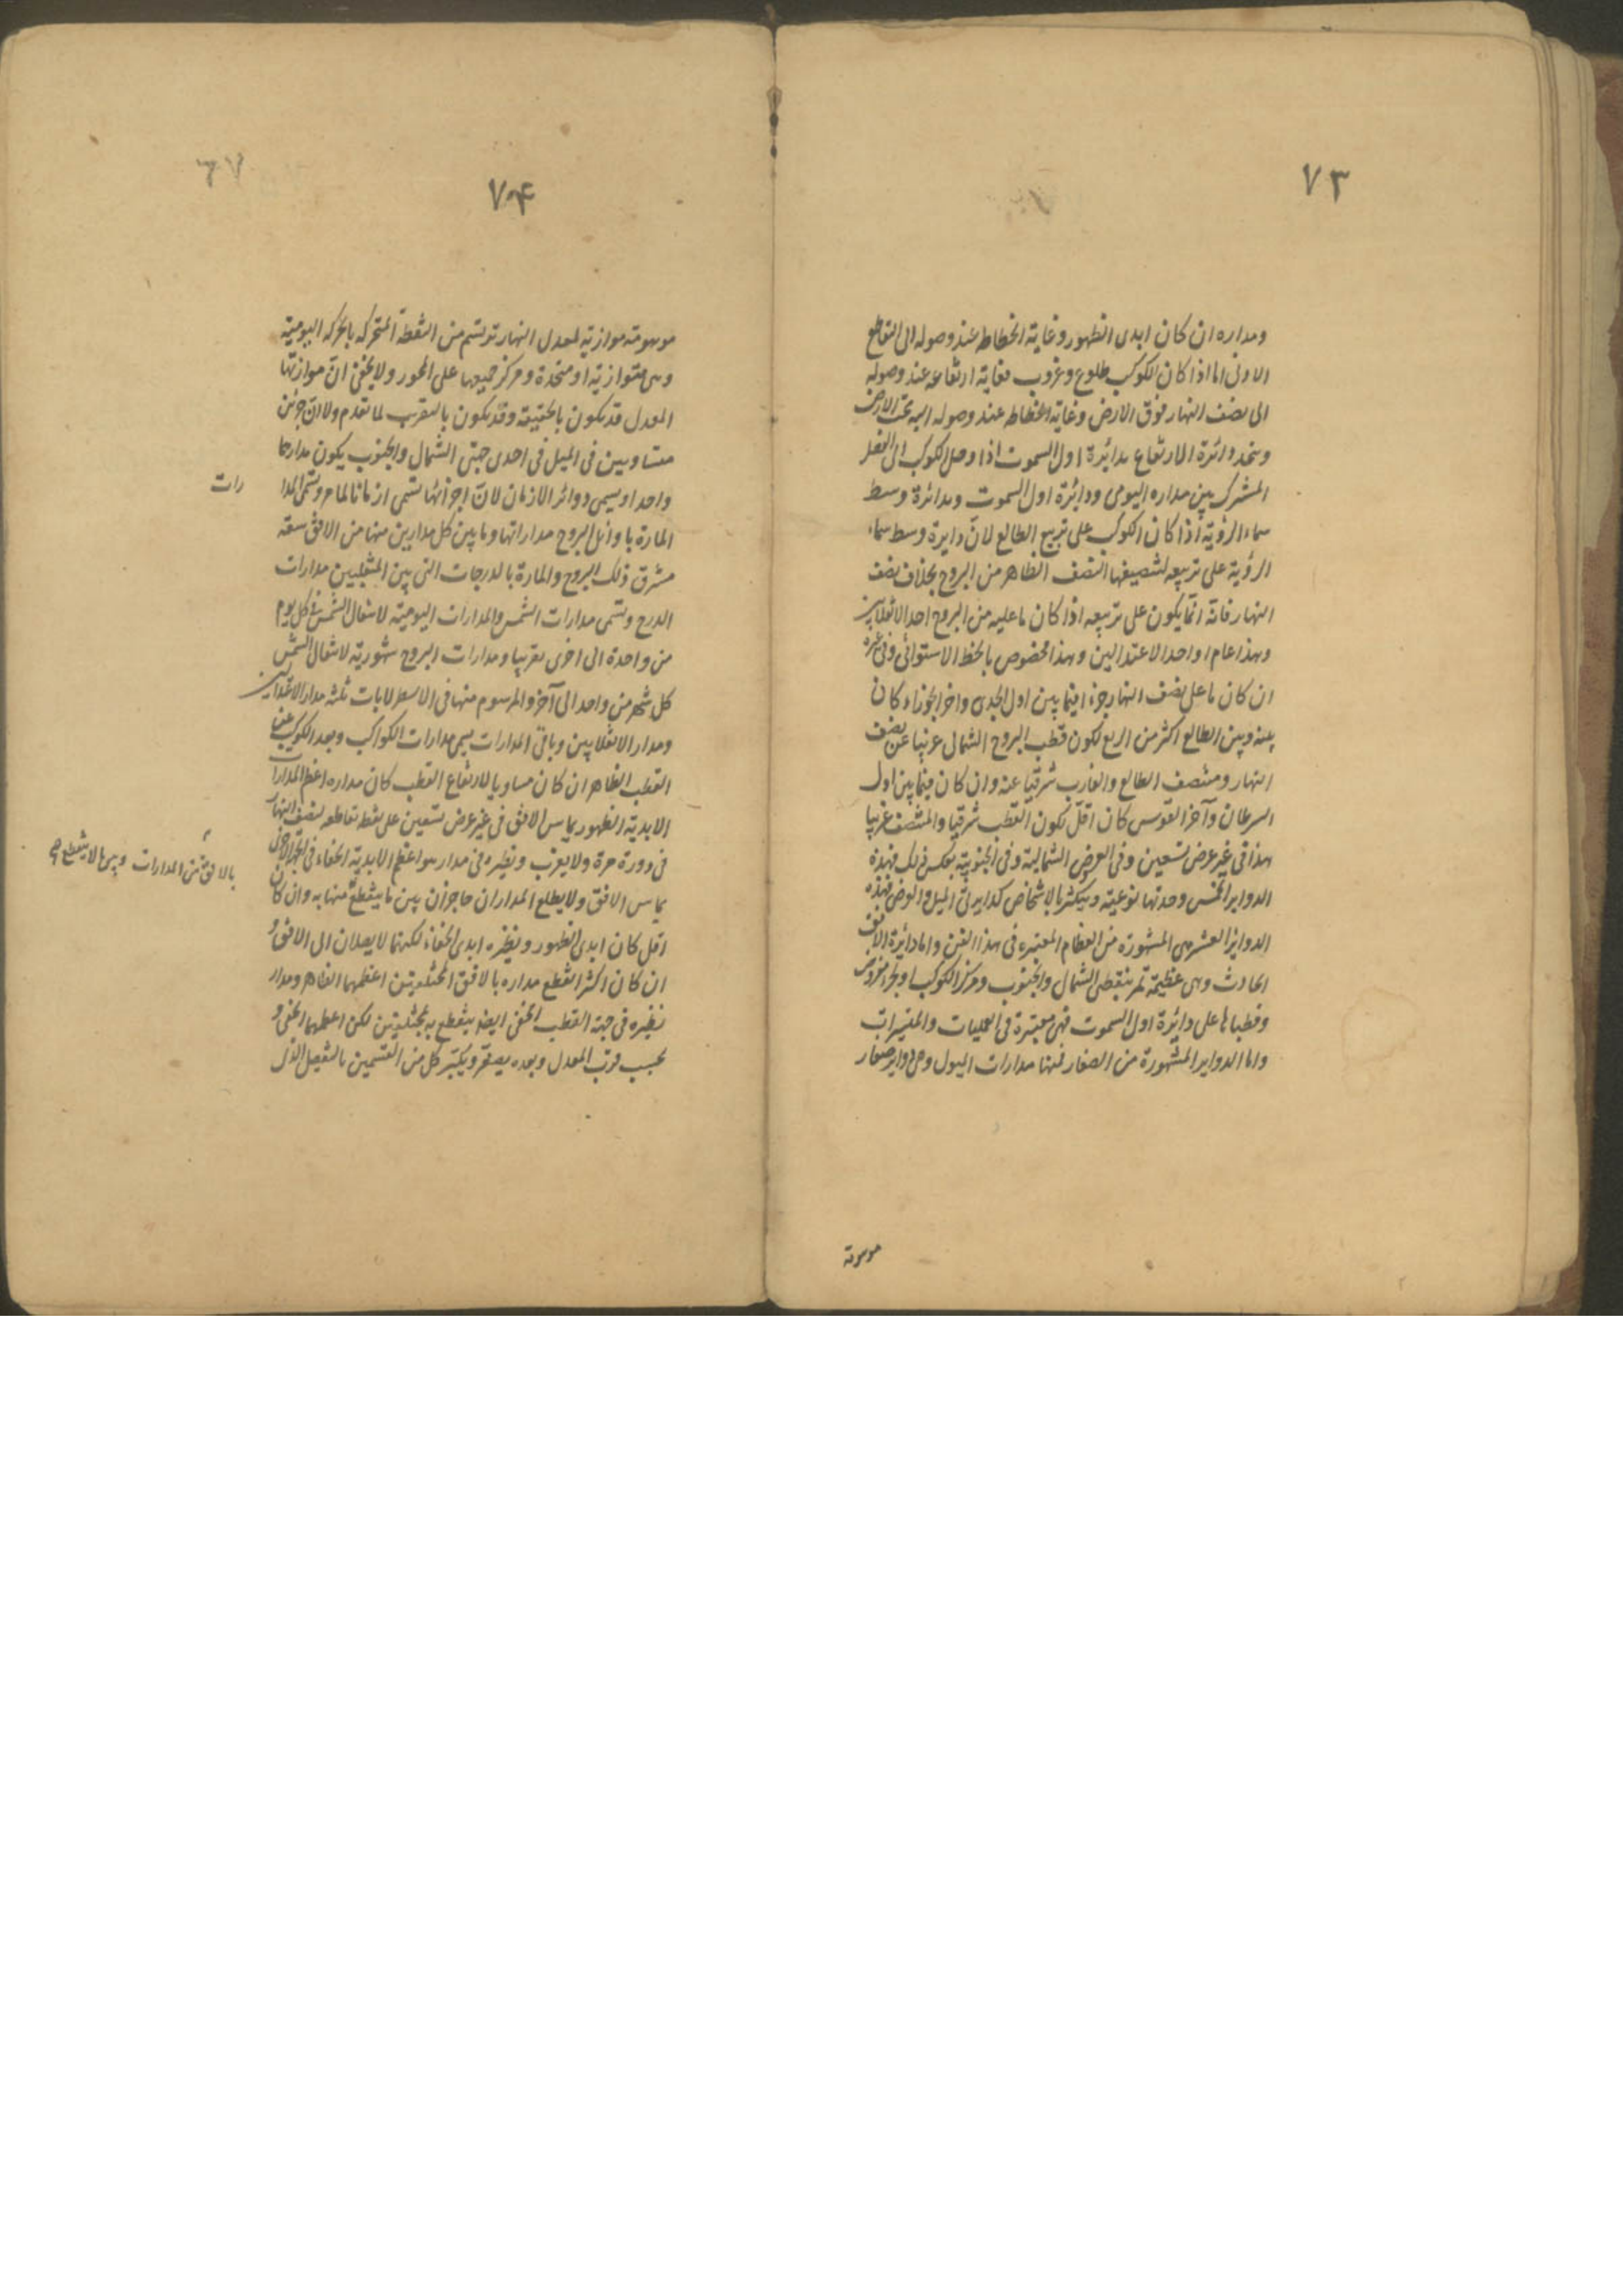 ٧٣
ومداره ان كان ابدى الظهور وغاية انحطاطه عند وصوله الى التقاطع
الادنى اما اذا كان للكوكب طلوع وغروب فغاية ارتفاعه عند وصوله
الى نصف النهار فوق الارض وغاية انحطاطه عند وصوله اليه تحت الارض
ويتحد دائرة الارتفاع بدائرة اول السموت اذا وصل الكوكب الى الفصل
المشترك بين مداره اليومى ودائرة اول السموت وبدائرة وسط
سماء الرؤية اذا كان الكوكب على تربيع الطالع لان دايرة وسط سماء
الرؤية على تربيعه لتنصيفها النصف الظاهر من البروج بخلاف نصف
النهار فانه انما يكون على تربيعه اذا كان ما عليه من البروج احد الانقلابين
وهذا عام او احد الاعتدالين وهذا مخصوص بالخط الاستوائى وفى غيره
ان كان ما على نصف النهار جزء افيما بين اول الجدى واخر الجوزاء كان
بينه وبين الطالع اكثر من الربع لكون قطب البروج الشمالى غربيا عن نصف
النهار ومنتصف الطالع والغارب شرقيا عنه وان كان فيما بين اول
السرطان وآخر القوس كان اقل لكون القطب شرقيا والمنتصف غربيا
هذا فى غير عرض تسعين وفى العروض الشمالية وفى الجنوبية بعكس ذلك فهذه
الدواير الخمس وحدتها نوعية ويتكثر بالاشخاص كدايرتى الميل والعرض فهذه
الدواير العشر هى المشهورة من العظام المعتبره فى هذا الفن واما دائرة الافق
الحادث وهى عظيمة تمر بنقطتى الشمال والجنوب ومركز الكوكب او بجزء مفروض
وقطباها على دائرة اول السموت فهى معتبرة فى العمليات والتسييرات
واما الدواير المشهورة من الصغار فمنها مدارات الميول وهى دواير صغار
موهومة
٧٤
موهومة موازية لمعدل النهار ترتسم من النقطة المتحركه بالحركه اليومية
وهى متوازية او متحدة ومركز جميعها على المحور ولا يخفى ان موازنتها
المعدل قد يكون بالحقيقة وقد يكون بالتقريب لما تقدم ولان جزئين
متساويين فى الميل فى احدى جهتى الشمال والجنوب يكون مدارهما
واحدا ويسمى دوائر الازمان لان اجزائها تسمى ازمانا لما مر وتسمى المدا
رات
المارة باوائل البروج مداراتها وما بين كل مدارين منها من الافق سعة
مشرق ذلك البروج والمارة بالدرجات التى بين المنقلبين مدارات
الدرج وتسمى مدارات الشمس والمدارات اليومية لانتقال الشمس فى كل يوم
من واحدة الى اخرى تقريبا ومدارات البروج شهورية لانتقال الشمس
كل شهر من واحد الى آخر والمرسوم منها فى الاسطرلابات ثلثه مدار الاعتدالين
ومدار الانقلابين وباقى المدارات يسمى مدارات الكواكب وبعد الكوكب عن
القطب الظاهر ان كان مساويا لارتفاع القطب كان مداره اعظم المدارات
الابدية الظهور يماس الافق فى غير عرض تسعين على نقطة تقاطعه لنصف النهار
فى دورة مرة ولا يغرب ونظيره فى مدار هو اعظم الابدية الخفاء فى الجهة الاخرى
يماس الافق ولا يطلع المداران حاجزان بين ما ينقطع منها به وان كان
بالافق من المدارات وبين ما لا ينقطع
اقل كان ابدى الظهور ونظيره ابدى الخفاء لكنهما لا يصلان الى الافق و
ان كان اكثر انقطع مداره بالافق المختلفين اعظمهما الظاهر ومدار
نظيره فى جهة القطب الخفى ايضا ينقطع به بمختلفتين لكن اعظمهما الخفى و
بحسب قرب المعدل وبعده يصغر ويكبر كل من القسمين بالتفصيل الذى